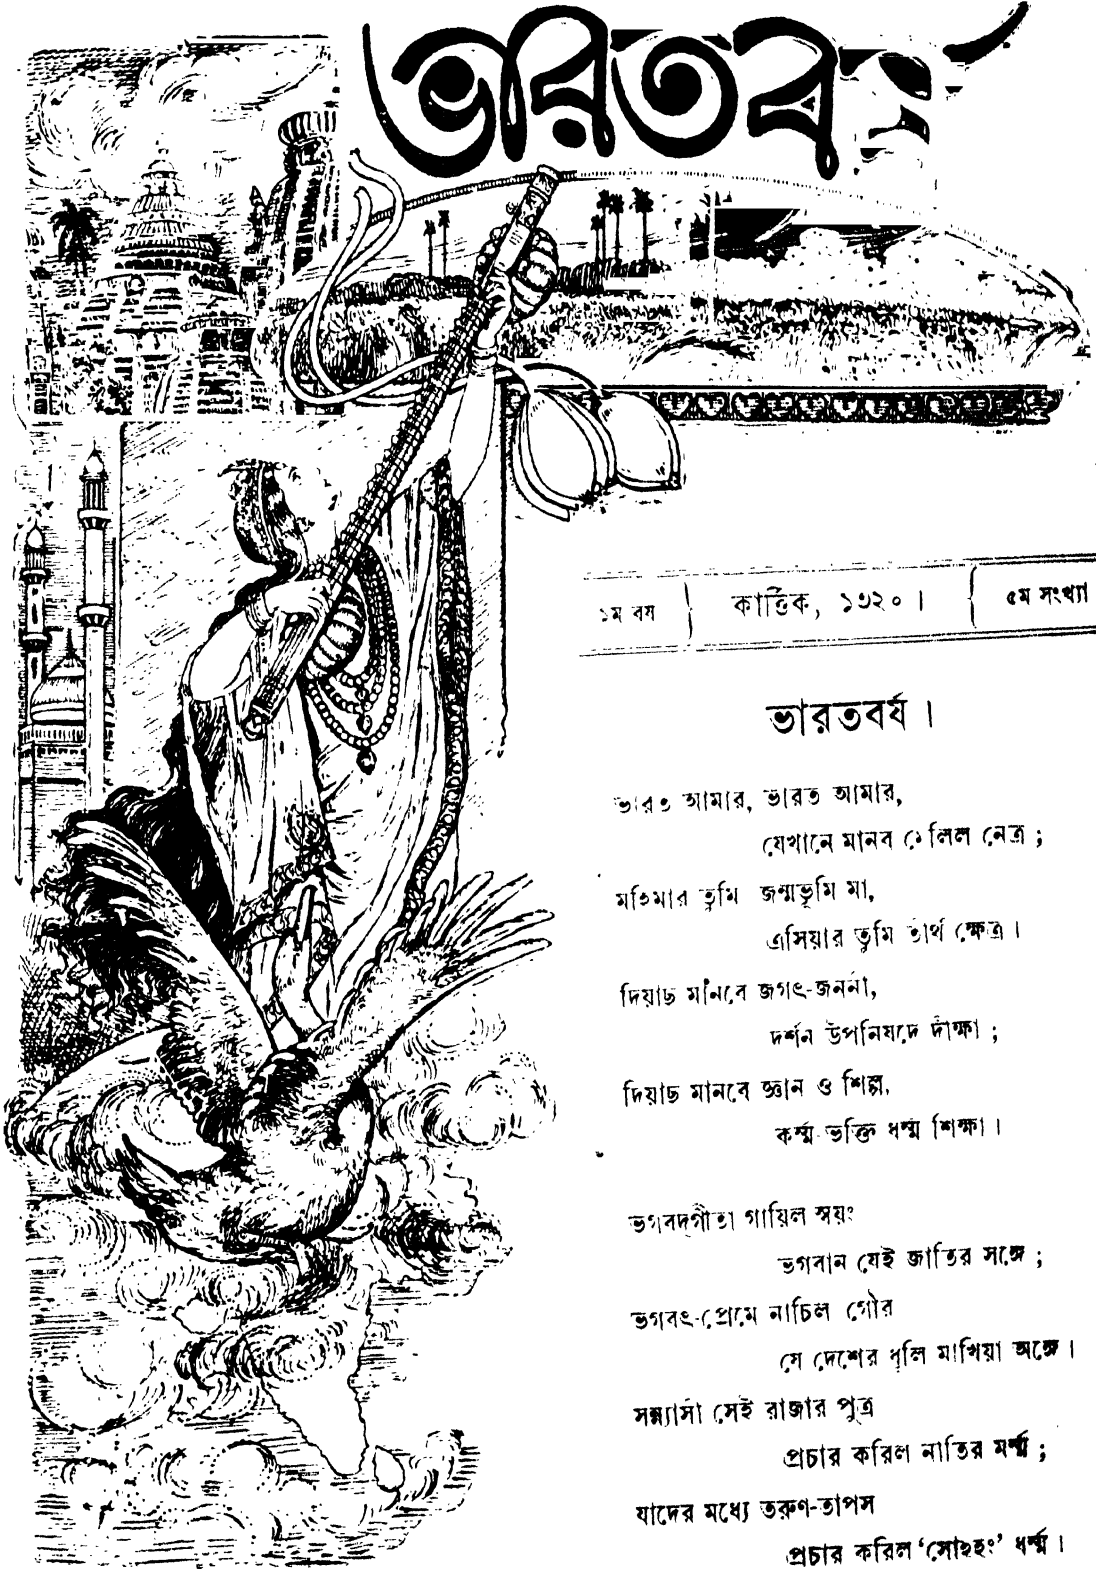 ভারতবর্ষ
১ম বর্ষ
কার্ত্তিক, ১৩২০ ।
৫ম সংখ্যা
ভারতবর্ষ ।
ভারত আমার, ভারত আমার,
যেখানে মানব মেলিল নেত্র ;
মহিমার তুমি জন্মভূমি মা,
এসিয়ার তুমি তীর্থ ক্ষেত্র ।
দিয়াছ মানবে জগৎ-জননী,
দর্শন উপনিষদে দীক্ষা ;
দিয়াছ মানবে জ্ঞান ও শিল্প,
কর্ম্ম-ভক্তি ধর্ম্ম শিক্ষা ।
ভগবদ্গীতা গায়িল স্বয়ং
ভগবান যেই জাতির সঙ্গে ;
ভগবৎ-প্রেমে নাচিল গৌর
যে দেশের ধূলি মাখিয়া অঙ্গে ।
সন্ন্যাসী সেই রাজার পুত্র
প্রচার করিল নীতির মর্ম্ম ;
যাদের মধ্যে তরুণ-তাপস
প্রচার করিল ‘সোহহং’ ধর্ম্ম ।